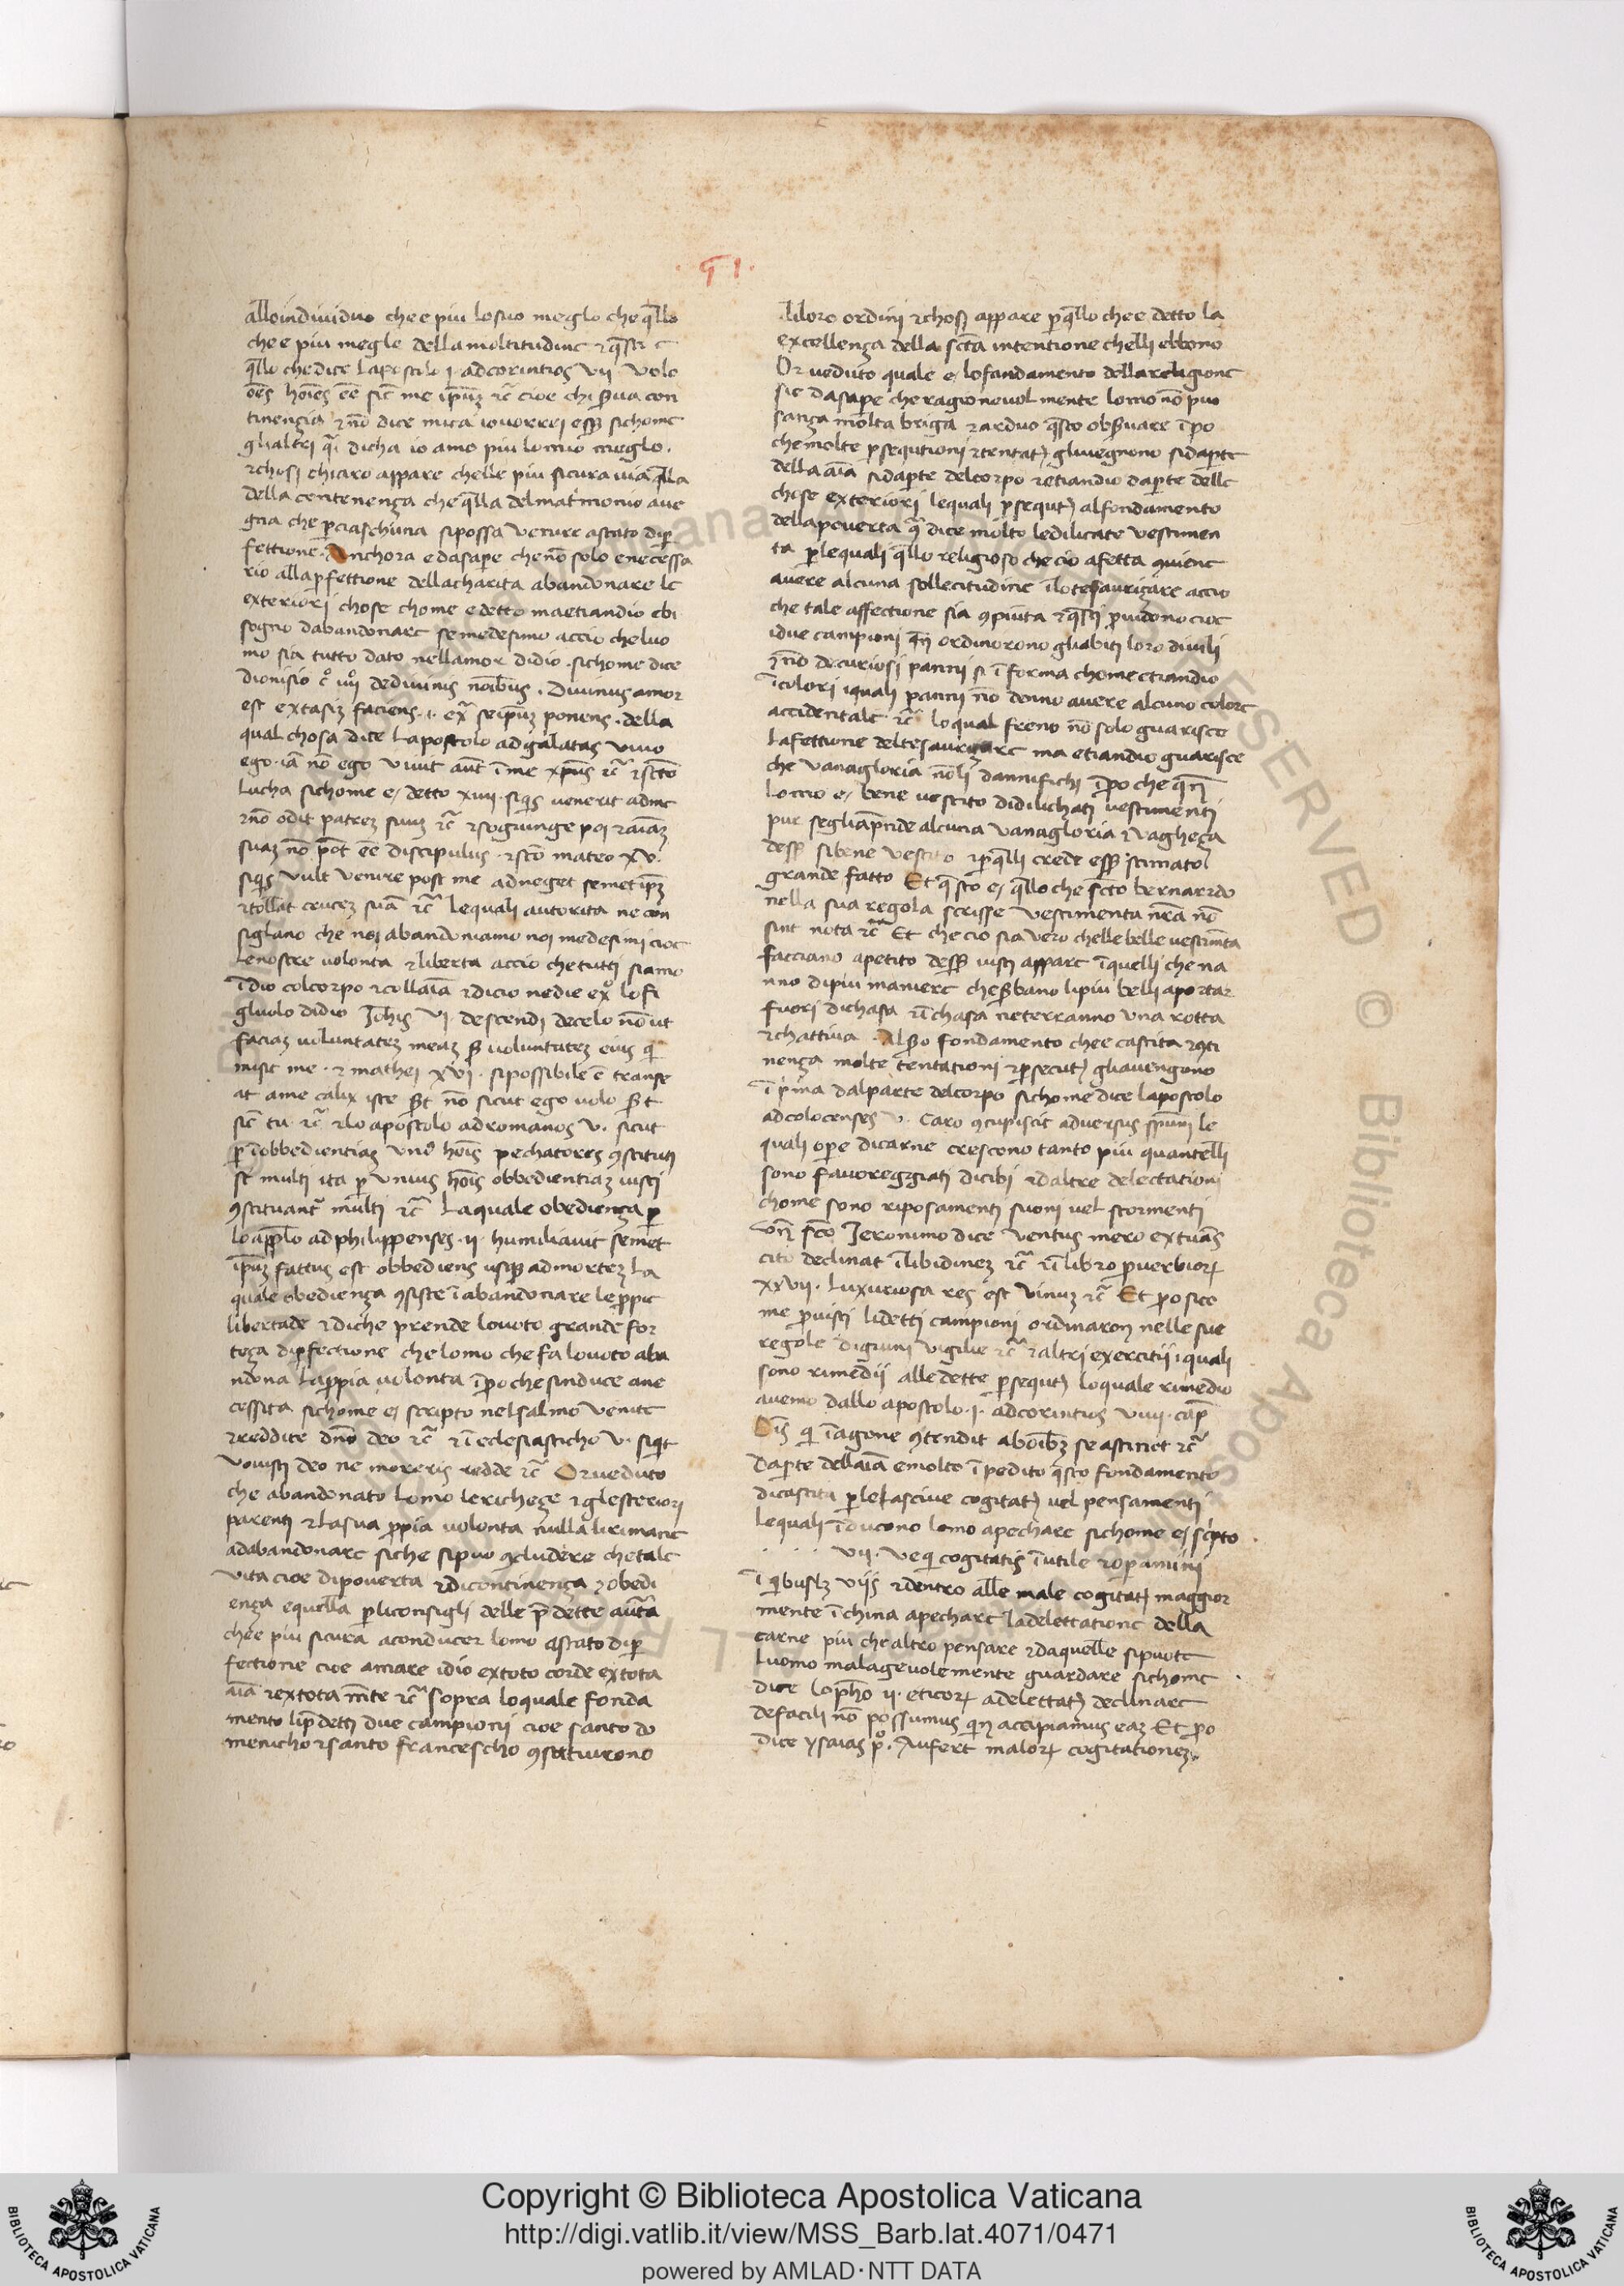 alloindiuiduo che e piu losuo meglo che q̄llo
che e piu megle della moltitudine ⁊ q̄sti e
q̄llo che dice lapostolo .j. adcorintios vij volo
oēs hoīes eē sic̄ me ip̄uꝫ ⁊c̄ cioe chi s̄ua con
tinenzia ⁊ nō dice mica iovorrej ess̄ sichome
glialtri q̄i dicha io amo piu lomio meglo.
⁊chosi chiaro appare chelle piu sicura uia q̄lla
della contenenza che q̄lla delmat'monio aue
gna che p̄ciaschuna sipossa venire astato dip̄
fettione. Anchora e dasape chenō solo enecessa
rio alla p̄fettione dellacharita abandonare le
exteriorj chose chome e detto maetiandio ebi
sogno dabandonare semedesimo accio cheluo
mo sia tutto dato nellamor didio . sichome dice
dionisio c̊ iiij̊ dediuinis noībus . Diuinus amor
est extasiꝫ faciens .i. ex̄ seip̄uꝫ ponens . della
qual chosa dice Lapostolo adgalatas viuo
ego . iā nō ego viuit aut̄ ī me xp̄us ⁊c̄ ⁊ sc̄to
Lucha sichome e detto xiiij . siq̄s venerit adme
⁊nō odit patreꝫ suuꝫ ⁊c̄ ⁊sogiunge poj ⁊aīaꝫ
suaꝫ nō pōt eē discipulus . ⁊sc̄o mateo xv.
siq̄s vult venire post me adneget semetip̄ꝫ
⁊tollat cruceꝫ suā ⁊c̄ lequali autorita ne con
siglano che noj abandoniamo noj medesimi cioe
lenostre volonta ⁊liberta accio chetutti siamo
īdio colcorpo ⁊collaīa ⁊dicio nedie ex̊ lo fi
gluolo didio Ioh̄is vi. descendj decelo nō ut
faciaꝫ voluntateꝫ meaꝫ s̄ voluntateꝫ eius q̄i
misit me . ⁊ mathej xvi . sipossibile ē transe
at ame calix iste s̄t nō sicut ego volo s̄t
sic̄ tu ⁊c̄ ⁊lo apostolo adromanos v. sicut
p̄ īobbedientiaꝫ unī hoīs pechatores ꝯstituti
st̄ multi ita p̄ vnius hoīs obbedientiaꝫ iusti
ꝯstituant̄ multi ⁊c̄ Laquale obedienza p̄
loapp̄lo adphilippenses . ij . humiliauit semet
ip̄uꝫ fattus est obbediens usqꝫ admorteꝫ La
quale obedienza ꝯsiste ī abandonare lep̄pie
libertade ⁊diche prende louoto grande for
teza dip̄fectione che lomo che fa louoto aba
ndona Lap̄pia volonta īpo chesinduce ane
cessita sichome e scripto nelsalmo Venite
⁊reddite dn̄o deo ⁊c̄ ⁊ ī eclesiasticho v. siq̄t
vouisti deo ne moreris redde ⁊c̄ Orueduto
che abandonato lomo lericheze ⁊glesteriori
parenti ⁊Lasua p̄pia volonta nulla lirimane
adabandonare siche sipuo ꝯcludere chetale
vita cioe dipouerta ⁊dicontinenza ⁊obedi
enza equella p̄liconsigli delle p̄dette aut̄ta
chee piu sicura aconducer lomo astato dip̄
fectione cioe amare idio extoto corde extota
aīa ⁊extota mēte ⁊c̄ sopra loquale fonda
mento lip̄detti due campionj cioe santo do
menicho ⁊santo francescho ꝯstituirono
liloro ordinj ⁊chosi appare p̄q̄llo chee detto la
excellenza della sc̄ta intentione chelli ebbono
Or ueduto quale e lofandamento dellareligione
sie dasape che ragioneuol mente lomo nō puo
sanza molta briga ⁊arduo q̄sto obs̄uare īpo
chemolte p̄sequtioni ⁊tentatꝭ gliuegnono sidap̄te
della aīa sidap̄te delcorpo ⁊etiandio dap̄te delle
chose exteriorj lequali p̄sequtꝭ alfondamento
dellapouerta q̄i dice molto ledilicate vestimen
ta p̄lequali q̄llo religioso checio afetta ꝯuiene
auere alcuna sollecitudine ī lotesaurizare accio
che tale affectione sia ꝯpiuta ⁊q̄sti p̄uidono cioe
idue campioni ordinorono gliabiti loro diuili
⁊nō decuriosj pannj si ī forma chome etiandio
ī colori iquali panni nō denno auere alcuno colore
accidentale ⁊c̄ loqual freno nō solo guarisce
Lafettione deltesaurizare ma etiandio guarisce
che vanagloria nōlj dannifichj īpo che
lomo e bene vestito didilichatj vestimenti
pur segliap̄nde alcuna vanagloria ⁊vagheza
dess̄ sibene vestito ⁊p̄q̄lli crede ess̄ istimato
grande fatto Et q̄sto e q̄llo che sc̄to bernardo
nella sua regola scrisse Vestimenta nr̄a nō
sint nota ⁊c̄ Et che cio sia vero chelle belle vestim̄ta
facciano apetito dess̄ uisti appare ī quelli che na
nno dipiu maniere ches̄bano lipiu belli aportar
fuori dichasa ⁊ī chasa neterranno una rotta
⁊chattiua . Als̄o fondamento chee castita ⁊ꝯti
nenza molte tentationi ⁊p̄secutꝭ gliauengono
ī p̄ma dalparte delcorpo sichome dice lapostolo
adcolocenses v. Caro ꝯcupiscit aduersus sp̄um le
quali ope dicarne crescono tanto piu quantelli
sono fauoregziati dicibi ⁊daltre delectationj
chome sono riposamenti suoni vel stormenti
sc̄o Jeronimo dice Ventus mero extuās
cito declinat ī libidineꝫ ⁊c̄ ⁊ī libro p̄uerbioꝝ
xxvij. Luxuriosa res est vinuꝫ ⁊c̄ Et p̄o sico
me p̄uisti lidetti campioni ordinaronꝫ nelle sue
regole digiuni vigilie ⁊c̄ ⁊altri exercitij iquali
sono rimedij alledette p̄sequtꝭ loquale rimedio
auemo dallo apostolo .j. adcorintios viiij cap̄
Oīs q̄i ī agone ꝯtendit aboībꝫ se astinet ⁊c̄
Daparte dellaīa emolto īpedito q̄sto fondamento
dicastita p̄lelasciue cogitatꝭ vel pensamenti
lequali īducono lomo apechare sichome e sc̄pto
. . . vij. Veq̄i cogitatis īutile ⁊opaminj
ī q̄ibuslꝫ vijs ⁊dentro alle male cogitatꝭ maggior
mente īchina apechare ladelettatione della
carne piu che altro pensare ⁊daquelle sipuote
Luomo malageuolemente guardare sichome
dice lop̄ho ij. eticoꝝ adelettatꝭ declinare
defacili nō possumus qinꝫ accipiamus eaꝫ Et p̄o
dice ysaias p̊. Aufert maloꝝ cogitationeꝫ.
Copyright © Biblioteca Apostolica Vaticana
http://digi.vatlib.it/view/MSS_Barb.lat.4071/0471
powered by AMLAD·NTT DATA
BIBLIOTECA APOSTOLICA VATICANA
BIBLIOTECA APOSTOLICA VATICANA